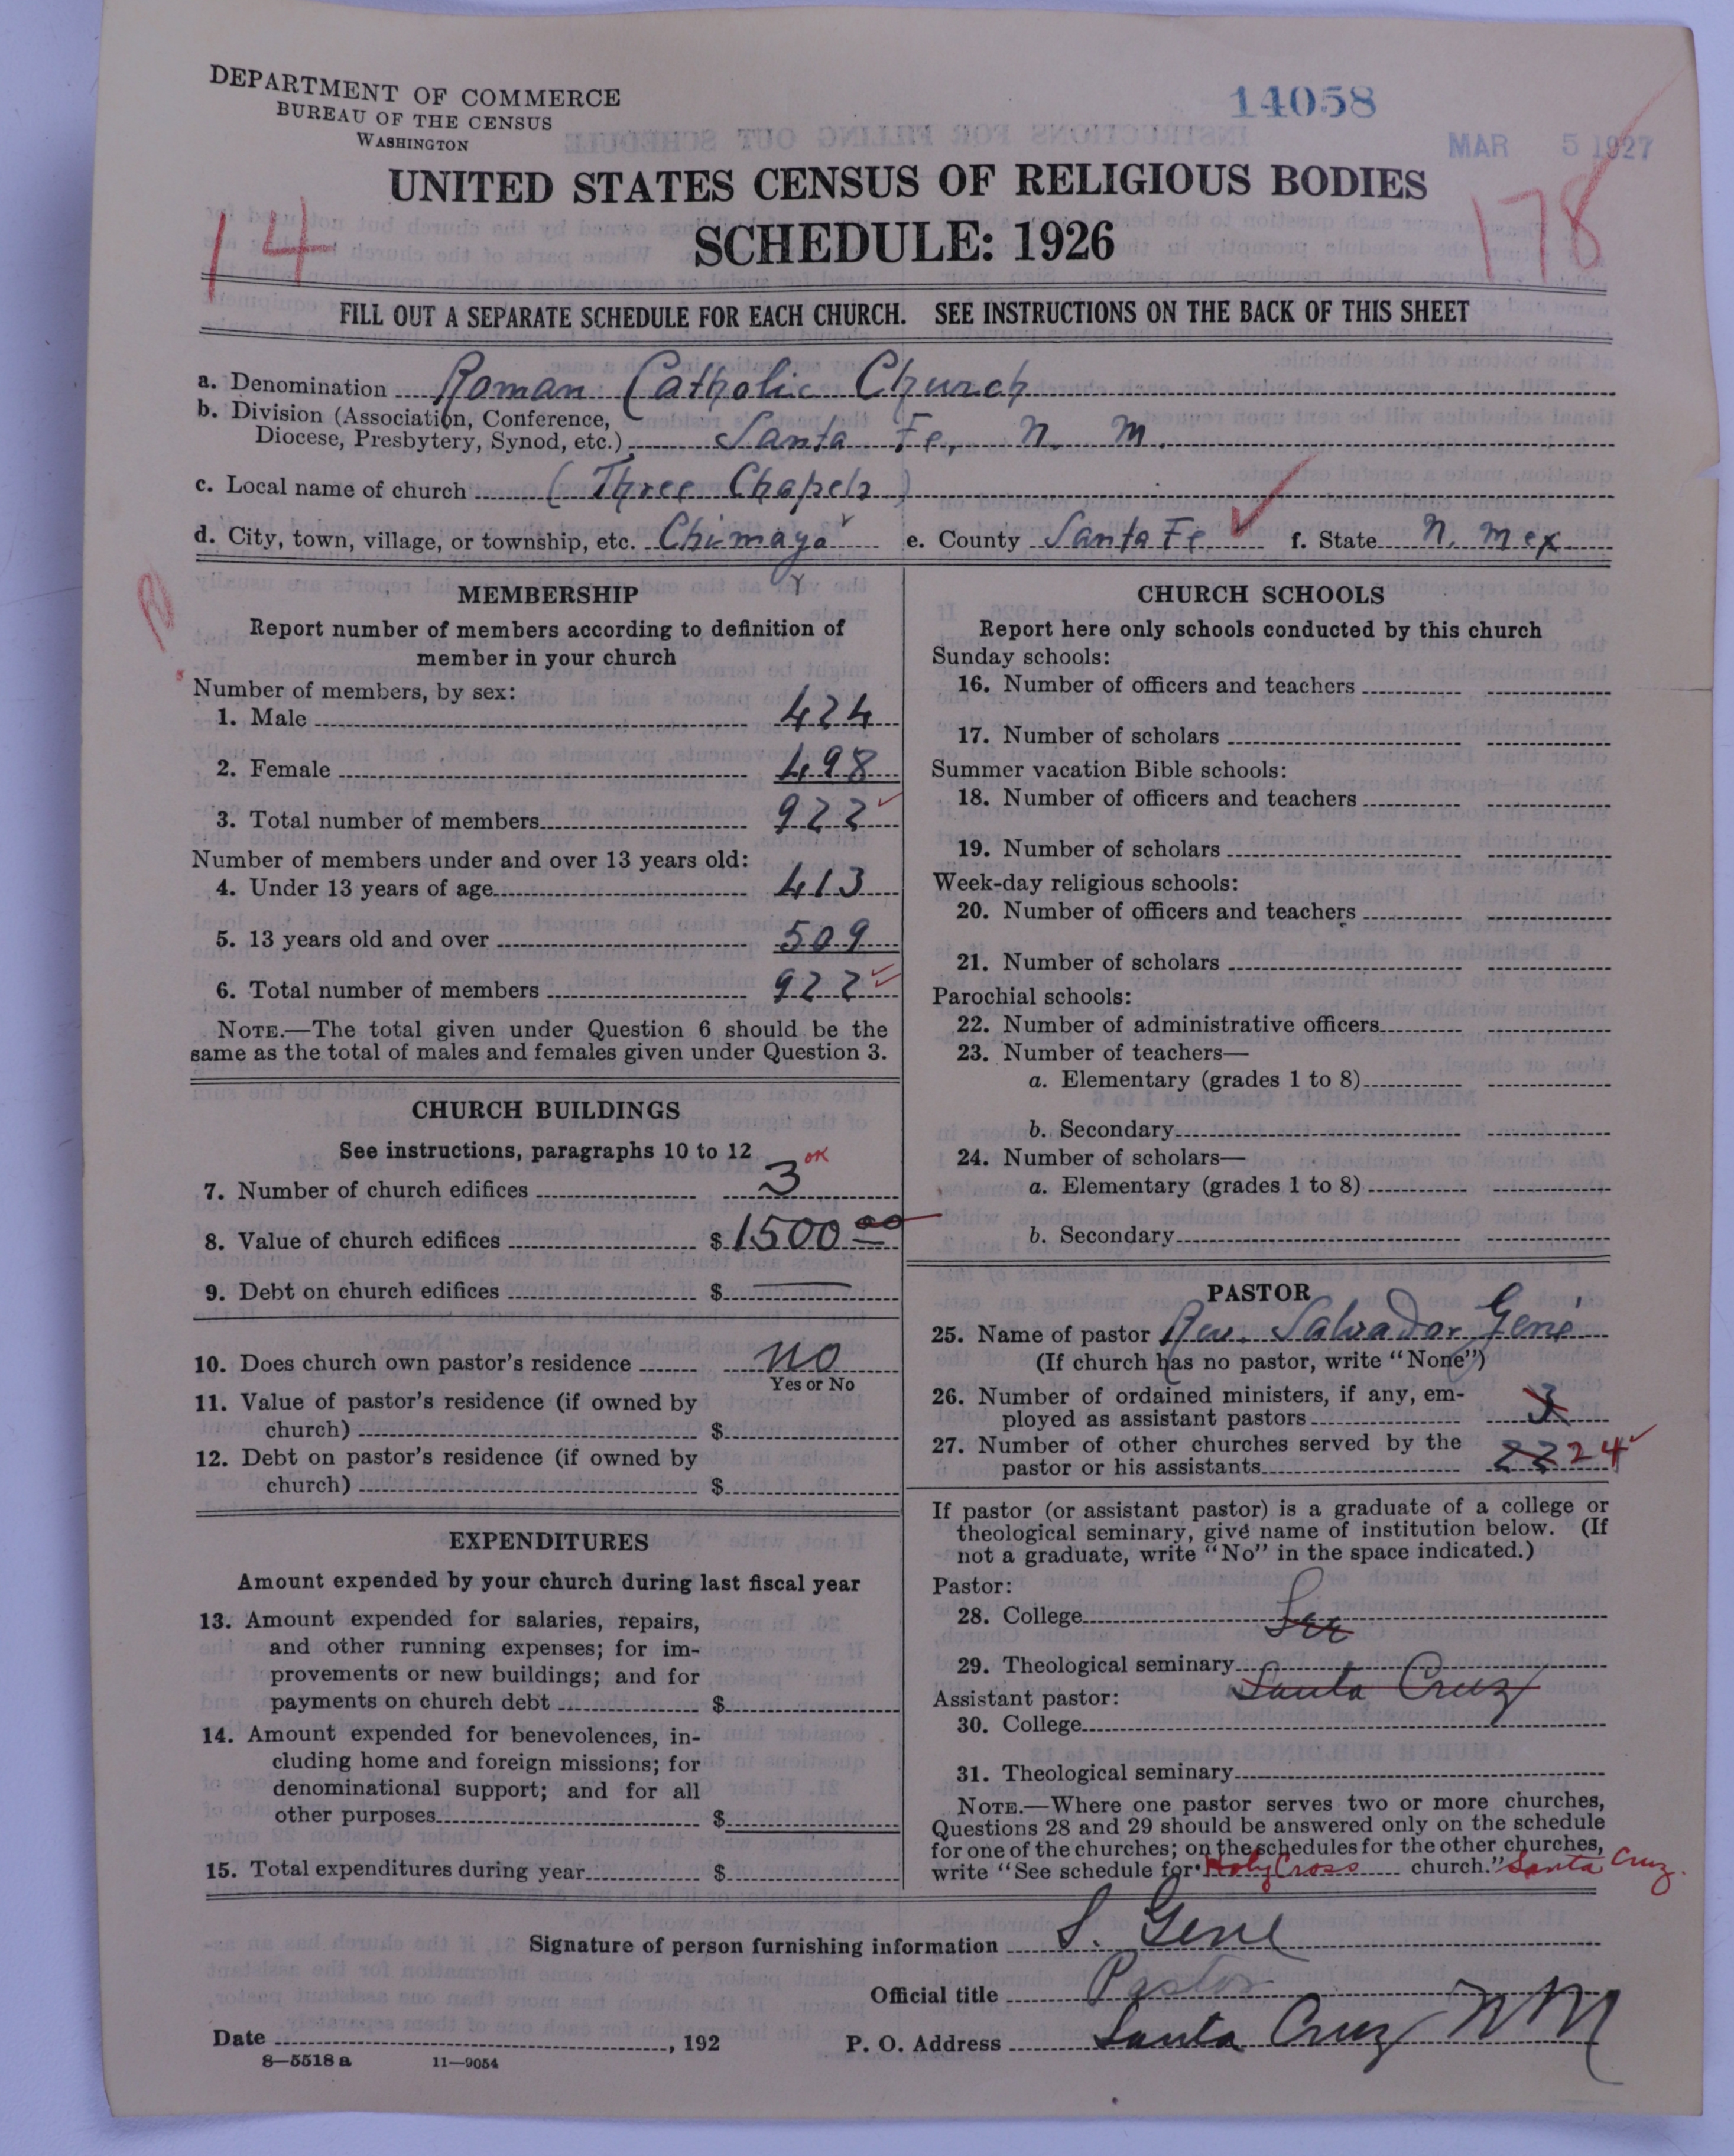 DEPARTMENT OF COMMERCE
BUREAU OF THE CENSUS
WASHINGTON
14058
MAR 5 1927
UNITED STATES CENSUS OF RELIGIOUS BODIES
14
SCHEDULE: 1926
178
FILL OUT A SEPARATE SCHEDULE FOR EACH CHURCH. SEE INSTRUCTIONS ON THE BACK OF THIS SHEET
a. Denomination Roman Catholic Church
b. Division (Association, Conference,
Diocese, Presbytery, Synod, etc.) Santa Fe, N. M.
c. Local name of church (Three Chapels)
d. City, town, village, or township, etc. Chimayo e. County Santa Fe f. State N. Mex
MEMBERSHIP
Report number of members according to definition of
member in your church
Number of members, by sex:
1. Male 424
2. Female 498
3. Total number of members 922
Number of members under and over 13 years old:
4. Under 13 years of age 413
5. 13 years old and over 509
6. Total number of members 922
NOTE.—The total given under Question 6 should be the
same as the total of males and females given under Question 3.
CHURCH BUILDINGS
See instructions, paragraphs 10 to 12
7. Number of church edifices 3 OK
8. Value of church edifices $1500 00
9. Debt on church edifices $ —
10. Does church own pastor's residence no
Yes or No
11. Value of pastor's residence (if owned by
church) $
12. Debt on pastor's residence (if owned by
church) $
EXPENDITURES
Amount expended by your church during last fiscal year
13. Amount expended for salaries, repairs,
and other running expenses; for im-
provements or new buildings; and for
payments on church debt $
14. Amount expended for benevolences, in-
cluding home and foreign missions; for
denominational support; and for all
other purposes $
15. Total expenditures during year $
CHURCH SCHOOLS
Report here only schools conducted by this church
Sunday schools:
16. Number of officers and teachers
17. Number of scholars
Summer vacation Bible schools:
18. Number of officers and teachers
19. Number of scholars
Week-day religious schools:
20. Number of officers and teachers
21. Number of scholars
Parochial schools:
22. Number of administrative officers
23. Number of teachers—
a. Elementary (grades 1 to 8)
b. Secondary
24. Number of scholars—
a. Elementary (grades 1 to 8)
b. Secondary
PASTOR
25. Name of pastor Rev. Salvador Gené
(If church has no pastor, write "None")
26. Number of ordained ministers, if any, em-
ployed as assistant pastors 3
27. Number of other churches served by the
pastor or his assistants 22 24
If pastor (or assistant pastor) is a graduate of a college or
theological seminary, give name of institution below. (If
not a graduate, write "No" in the space indicated.)
Pastor:
28. College See
29. Theological seminary Santa Cruz
Assistant pastor:
30. College
31. Theological seminary
NOTE.—Where one pastor serves two or more churches,
Questions 28 and 29 should be answered only on the schedule
for one of the churches; on the schedules for the other churches,
write "See schedule for Holy Cross church." Santa Cruz.
Signature of person furnishing information S. Gene
Official title Pastor
Date , 192 P. O. Address Santa Cruz N M
8—5518 a 11—9054